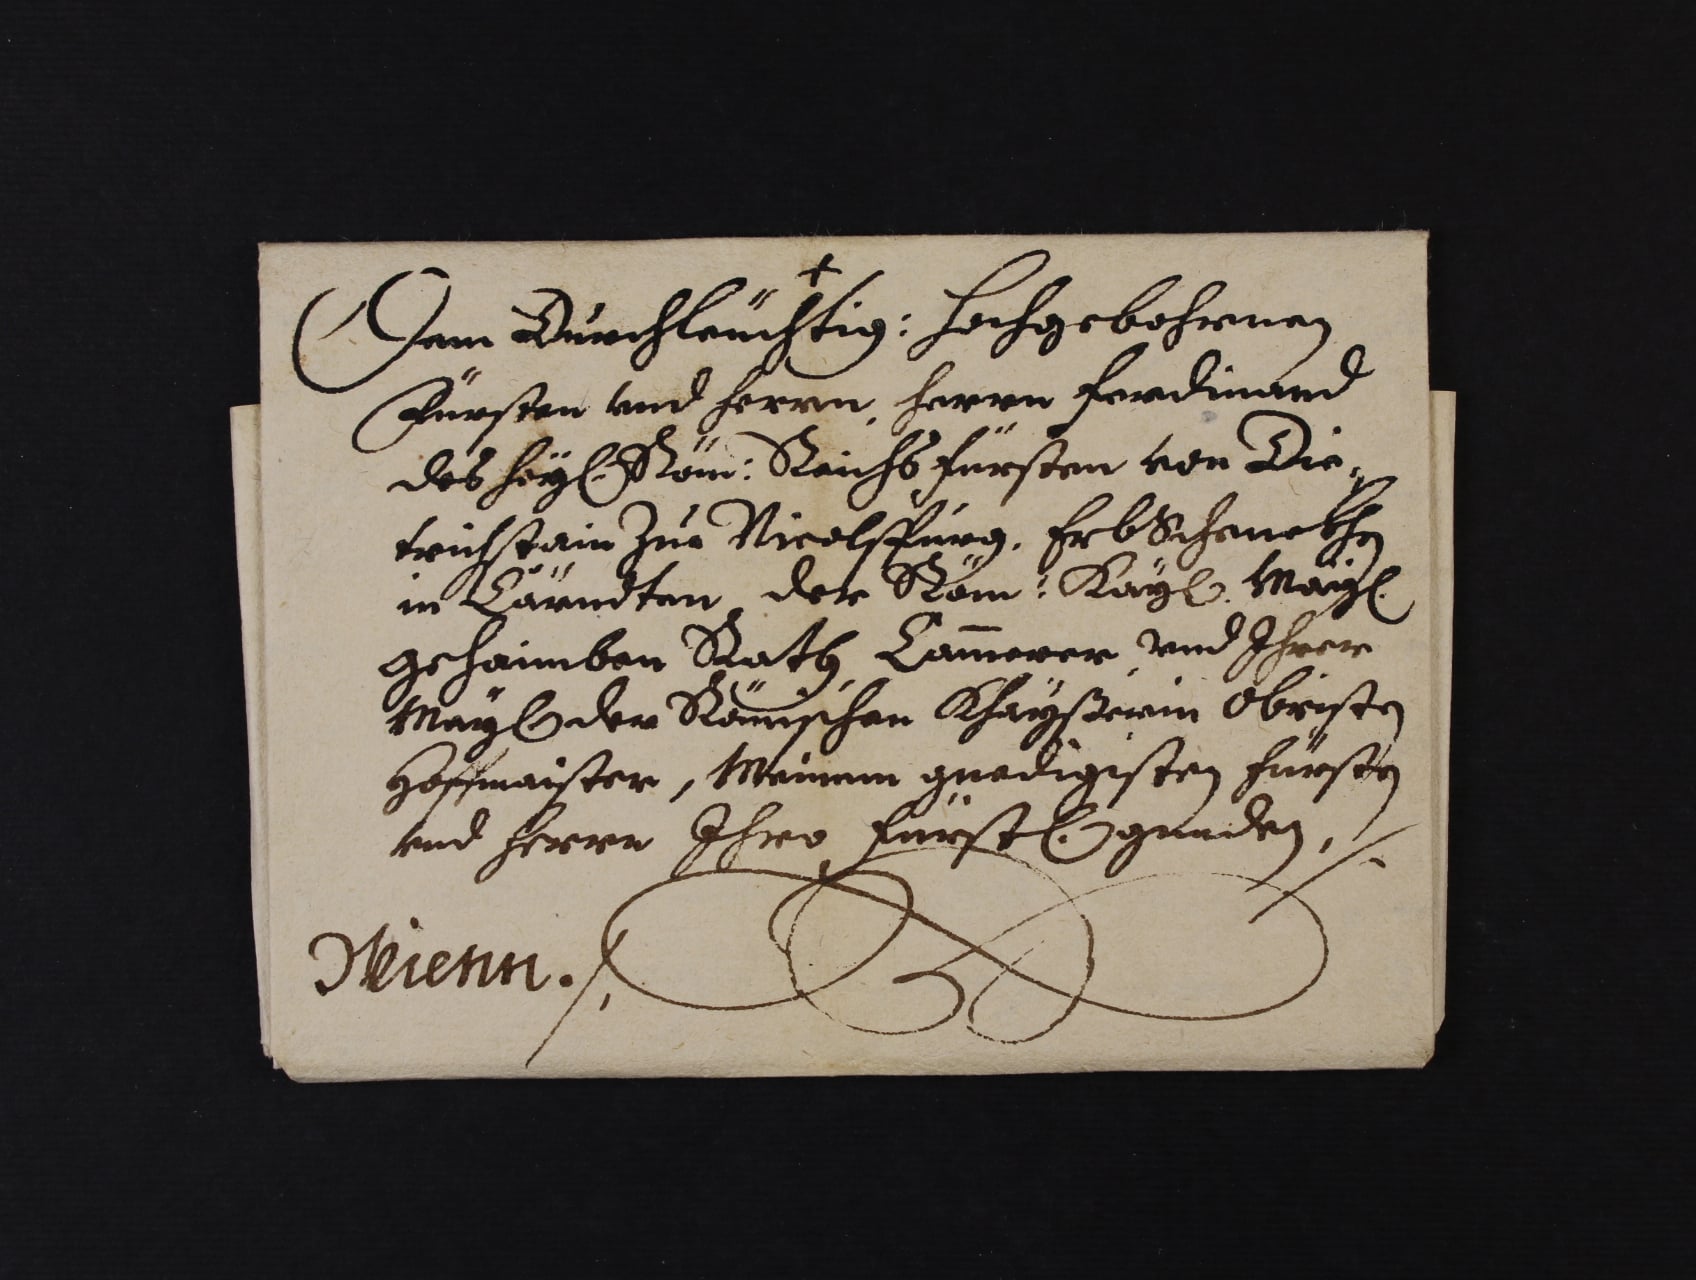 +
Dem Durchleüchtig: Hochgebohrnen
Fürsten und Herrn, Herrn Ferdinand
des heyl. Röm: Reichs Fürsten von Die-
trichstain Zue Nicolspurg, ErbSchenckhen
in Cärndten, der Röm: Kayl. Mayl.
gehaimben Rath, Camerer, und Ihrer
Mayl. der Römischen Khayßerin Obristen
Hoffmaister, Meinem gnedigisten Fürsten
und Herrn Ihro Fürstl. gnaden,
Wienn.